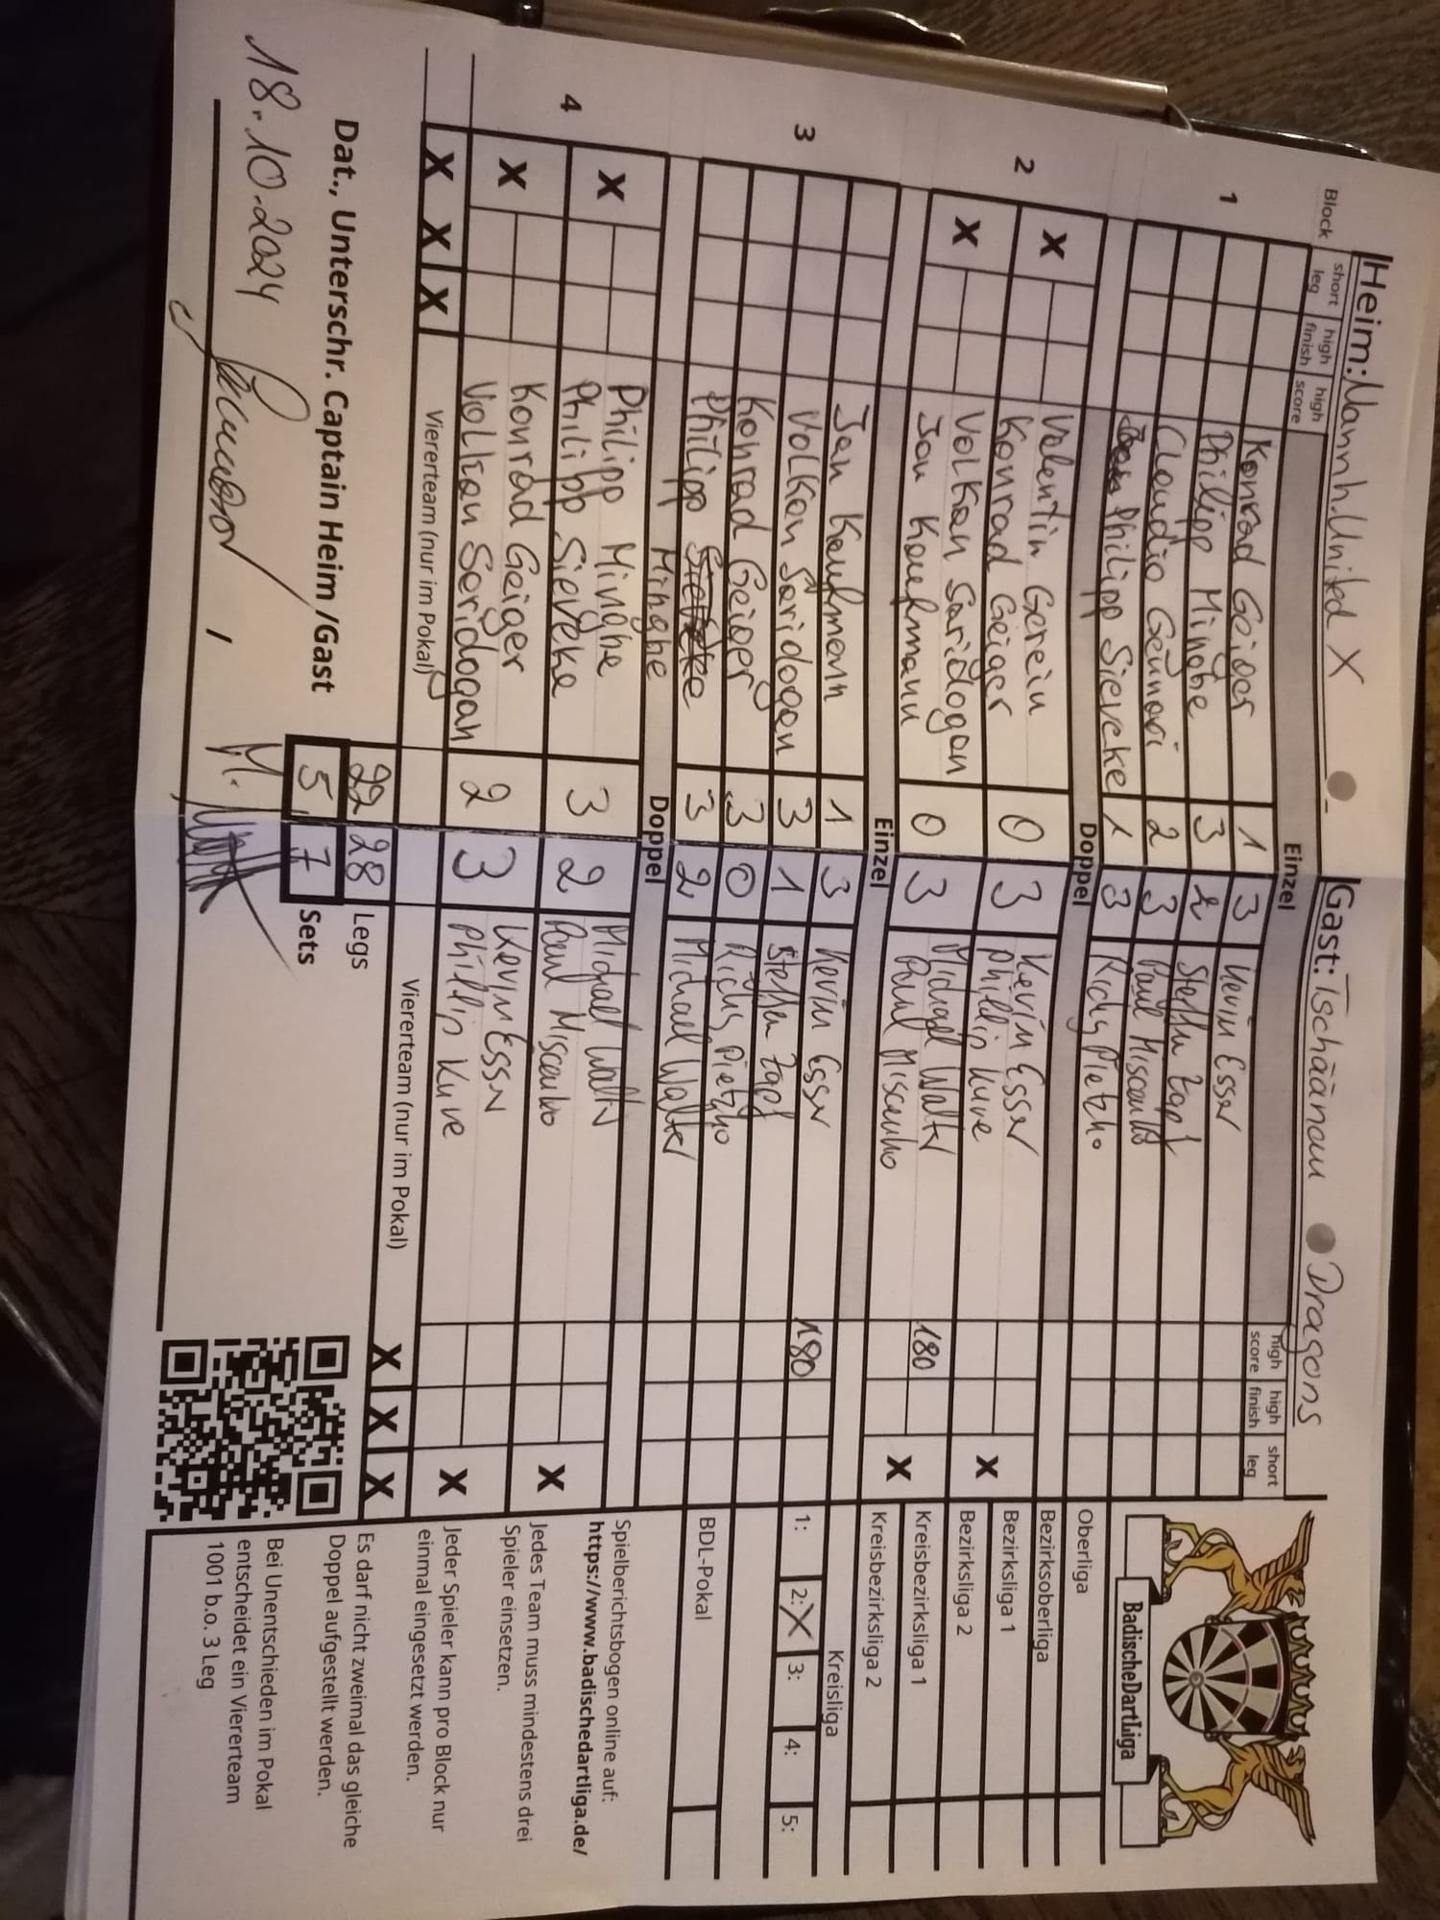 Heim: Mannh. United X - Gast: Tschäänau Dragons
Block short leg high finish high score Einzel high score high finish short leg
1 Konrad Geiger 1 3 Kevin Esser
Philipp Minghe 3 2 Steffen Zapf
Claudio Gennari 2 3 Paul Miscenko
Philipp Sieveke 1 3 Ricky Pietzko
Doppel
2 X Valentin Gerein
Konrad Geiger 0 3 Kevin Esser
Phillip Kuve X
X Volkan Saridogan
Jan Kaufmann 0 3 Michael Walter
Paul Miscenko 180 X
Einzel
3 Jan Kaufmann 1 3 Kevin Esser
Volkan Saridogan 3 1 Steffen Zapf 180
Konrad Geiger 3 0 Ricky Pietzko
Philipp Minghe 3 2 Michael Walter
Doppel
4 X Philipp Minghe
Philipp Sieveke 3 2 Michael Walter
Paul Miscenko X
X Konrad Geiger
Volkan Saridogan 2 3 Kevin Esser
Phillip Kuve X
X X X Viererteam (nur im Pokal) Viererteam (nur im Pokal) X X X
22 28 Legs
Dat., Unterschr. Captain Heim /Gast 5 7 Sets
18.10.2024
BadischeDartLiga
Oberliga
Bezirksoberliga
Bezirksliga 1
Bezirksliga 2
Kreisbezirksliga 1
Kreisbezirksliga 2
Kreisliga
1: 2: X 3: 4: 5:
BDL-Pokal
Spielberichtsbogen online auf:
https://www.badischedartliga.de/
Jedes Team muss mindestens drei
Spieler einsetzen.
Jeder Spieler kann pro Block nur
einmal eingesetzt werden.
Es darf nicht zweimal das gleiche
Doppel aufgestellt werden.
Bei Unentschieden im Pokal
entscheidet ein Viererteam
1001 b.o. 3 Leg